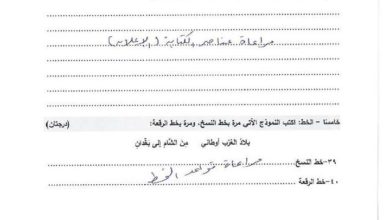 مراعاة عناصر كتابة (الإعلان)
خامسًا - الخط: اكتب النموذج الآتي مرة بخط النسخ، ومرة بخط الرقعة: (درجتان)
بلادُ العُرْبِ أوطاني مِنَ الشَّامِ إلى بَغْدَانِ
٣٩-خط النسخ مراعاة قواعد الخط
٤٠-خط الرقعة